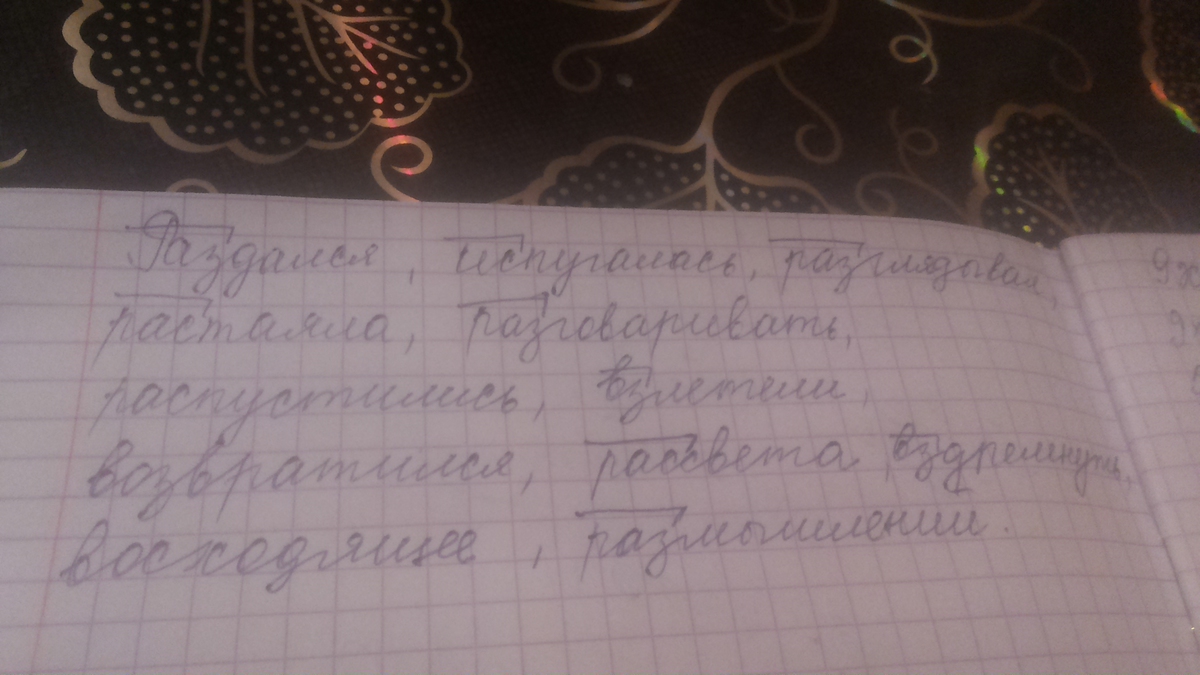 Раздался, испугалась, разглядывал,
растаяла, разговаривать,
распустились, взлетели,
возвратился, рассвета вздремнуть,
восходящее, размышлении.